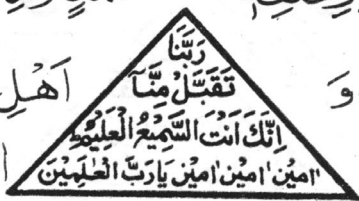 وَ
اَهْلِ
رَبَّنَا
تَقَبَّلْ مِنَّآ
اِنَّكَ اَنْتَ السَّمِيْعُ الْعَلِيْمُ
اٰمِيْن اٰمِيْن اٰمِيْن يَارَبَّ الْعٰلَمِيْنَ